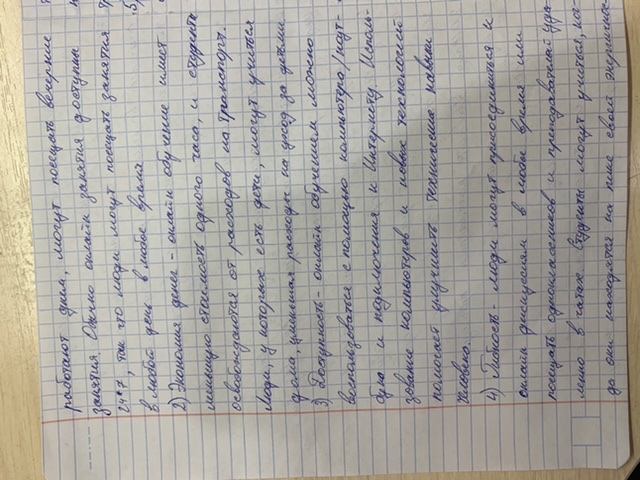 работают днём, могут посещать вечерние
занятия. Обычно онлайн занятия доступны
24*7, так что люди могут посещать занятия
в любой день в любое время
2) Экономия денег - онлайн обучение имеет
меньшую стоимость одного часа, и студенты
освобождаются от расходов на транспорт.
Люди, у которых есть дети, могут учиться
дома, уменьшая расходы на уход за детьми
3) Доступность - онлайн обучением можно
воспользоваться с помощью компьютера/ноут-
бука и подключения к Интернету. Исполь-
зование компьютеров и новых технологий
помогает улучшить технические навыки
человека.
4) Гибкость - люди могут присоединиться к
онлайн дискуссиям в любое время или
посещать одноклассников и преподавателей уда-
лённо в чатах. Студенты могут учиться, ког-
да они находятся на пике своей